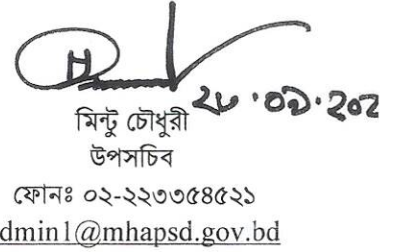 ২৮.০৯.২০২
মিন্টু চৌধুরী
উপসচিব
ফোনঃ ০২-২২৩৩৫৪৫২১
dmin1@mhapsd.gov.bd